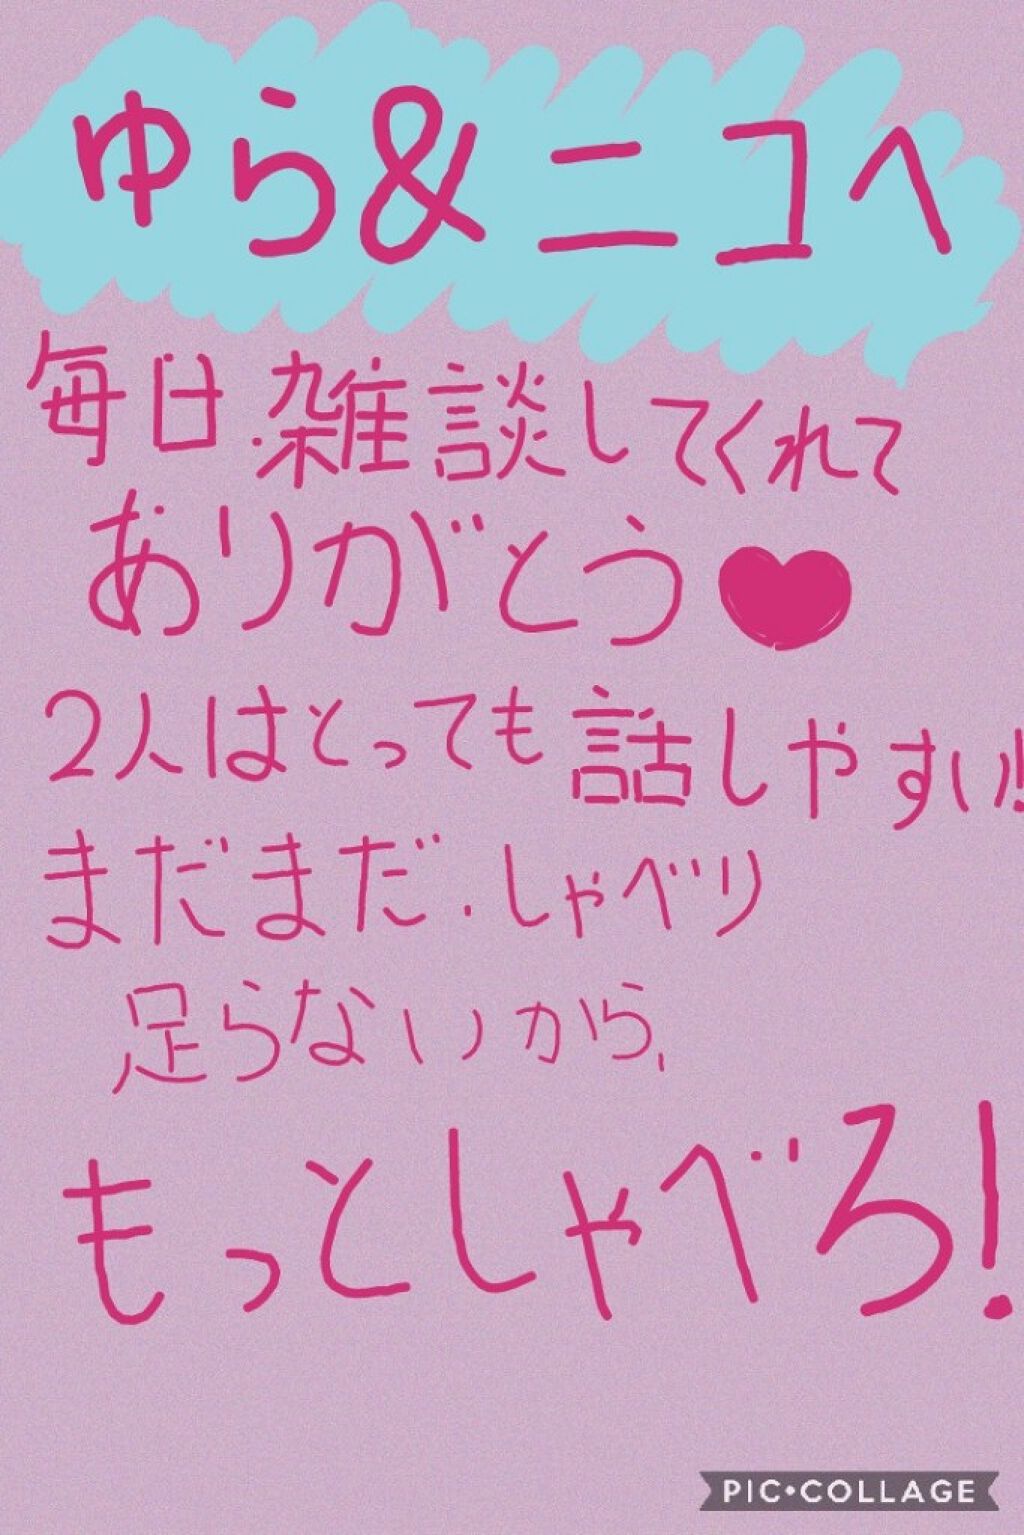 ゆら&ニコへ
毎日雑談してくれて
ありがとう♥
2人はとっても話しやすい!
まだまだしゃべり
足らないから、
もっとしゃべろ!
PIC•COLLAGE